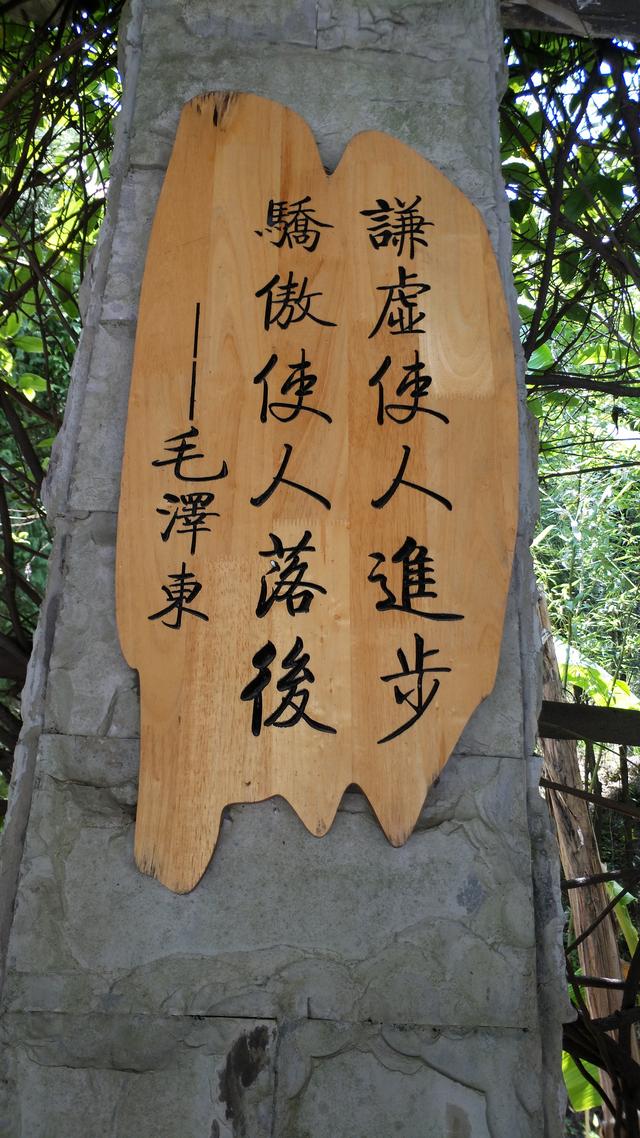 謙虛使人進步
驕傲使人落後
——毛澤東